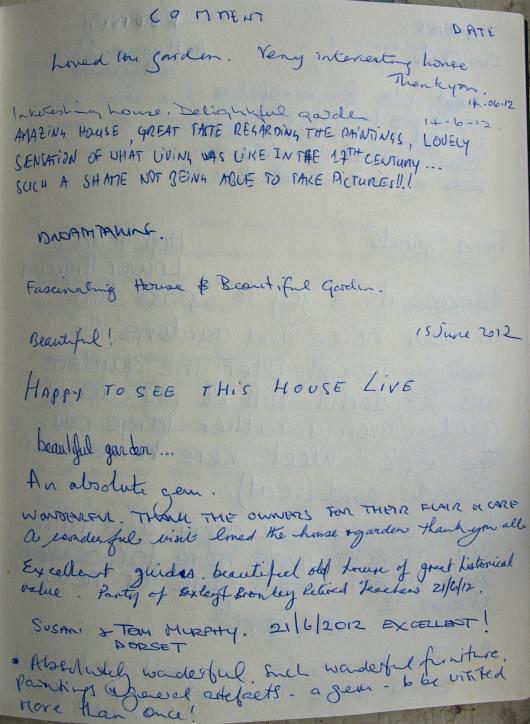 COMMENT
DATE
Loved the garden. Very interesting house
Thankyou.
14.06.12
Interesting house. Delightful garden
14-6-12
AMAZING HOUSE, GREAT TASTE REGARDING THE PAINTINGS, LOVELY
SENSATION OF WHAT LIVING WAS LIKE IN THE 17TH CENTURY...
SUCH A SHAME NOT BEING ABLE TO TAKE PICTURES!!!
Fascinating House & Beautiful Garden.
Beautiful!
15 June 2012
HAPPY TO SEE THIS HOUSE LIVE
beautiful garden...
An absolute gem.
WONDERFUL. THANK THE OWNERS FOR THEIR FLAIR & CARE
A wonderful visit loved the house & garden thank you all
Excellent guides, beautiful old house of great historical
value. Party of Bromley Retired Teachers 21/6/12.
SUSAN & TOM MURPHY. 21/6/2012 EXCELLENT!
DORSET
• Absolutely wonderful. Such wonderful furniture,
paintings & general artefacts - a gem - to be visited
more than once!